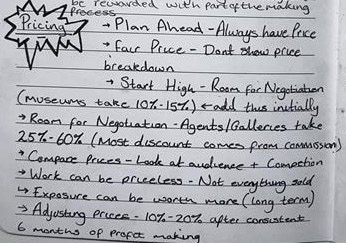 be rewarded with part of the making
process
Pricing
→ Plan Ahead - Always have Price
→ Fair Price - Dont show price
breakdown
→ Start High - Room for Negotiation
(Museums take 10%-15%) ← add this initially
→ Room for Negotiation - Agents/Galleries take
25%-60% (Most discount comes from commission)
→ Compare Prices - Look at audience + Compection
→ Work can be priceless - Not everything sold
↳ Exposure can be worth more (long term)
→ Adjusting Prices - 10%-20% after consistent
6 months of profit making